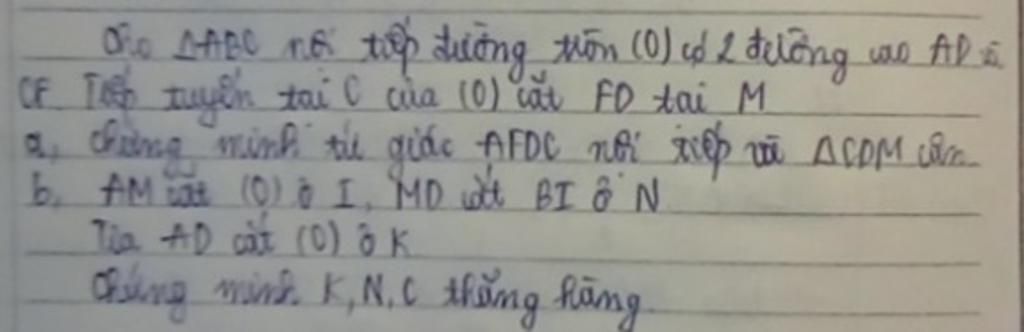 Cho ΔABC nội tiếp đường tròn (O) có 2 đường cao AD và
CF. Tiếp tuyến tại C của (O) cắt FD tại M
a, Chứng minh tứ giác AFDC nội tiếp và ΔCDM cân
b, AM cắt (O) ở I, MD cắt BI ở N
Tia AD cắt (O) ở K
Chứng minh K, N, C thẳng hàng.